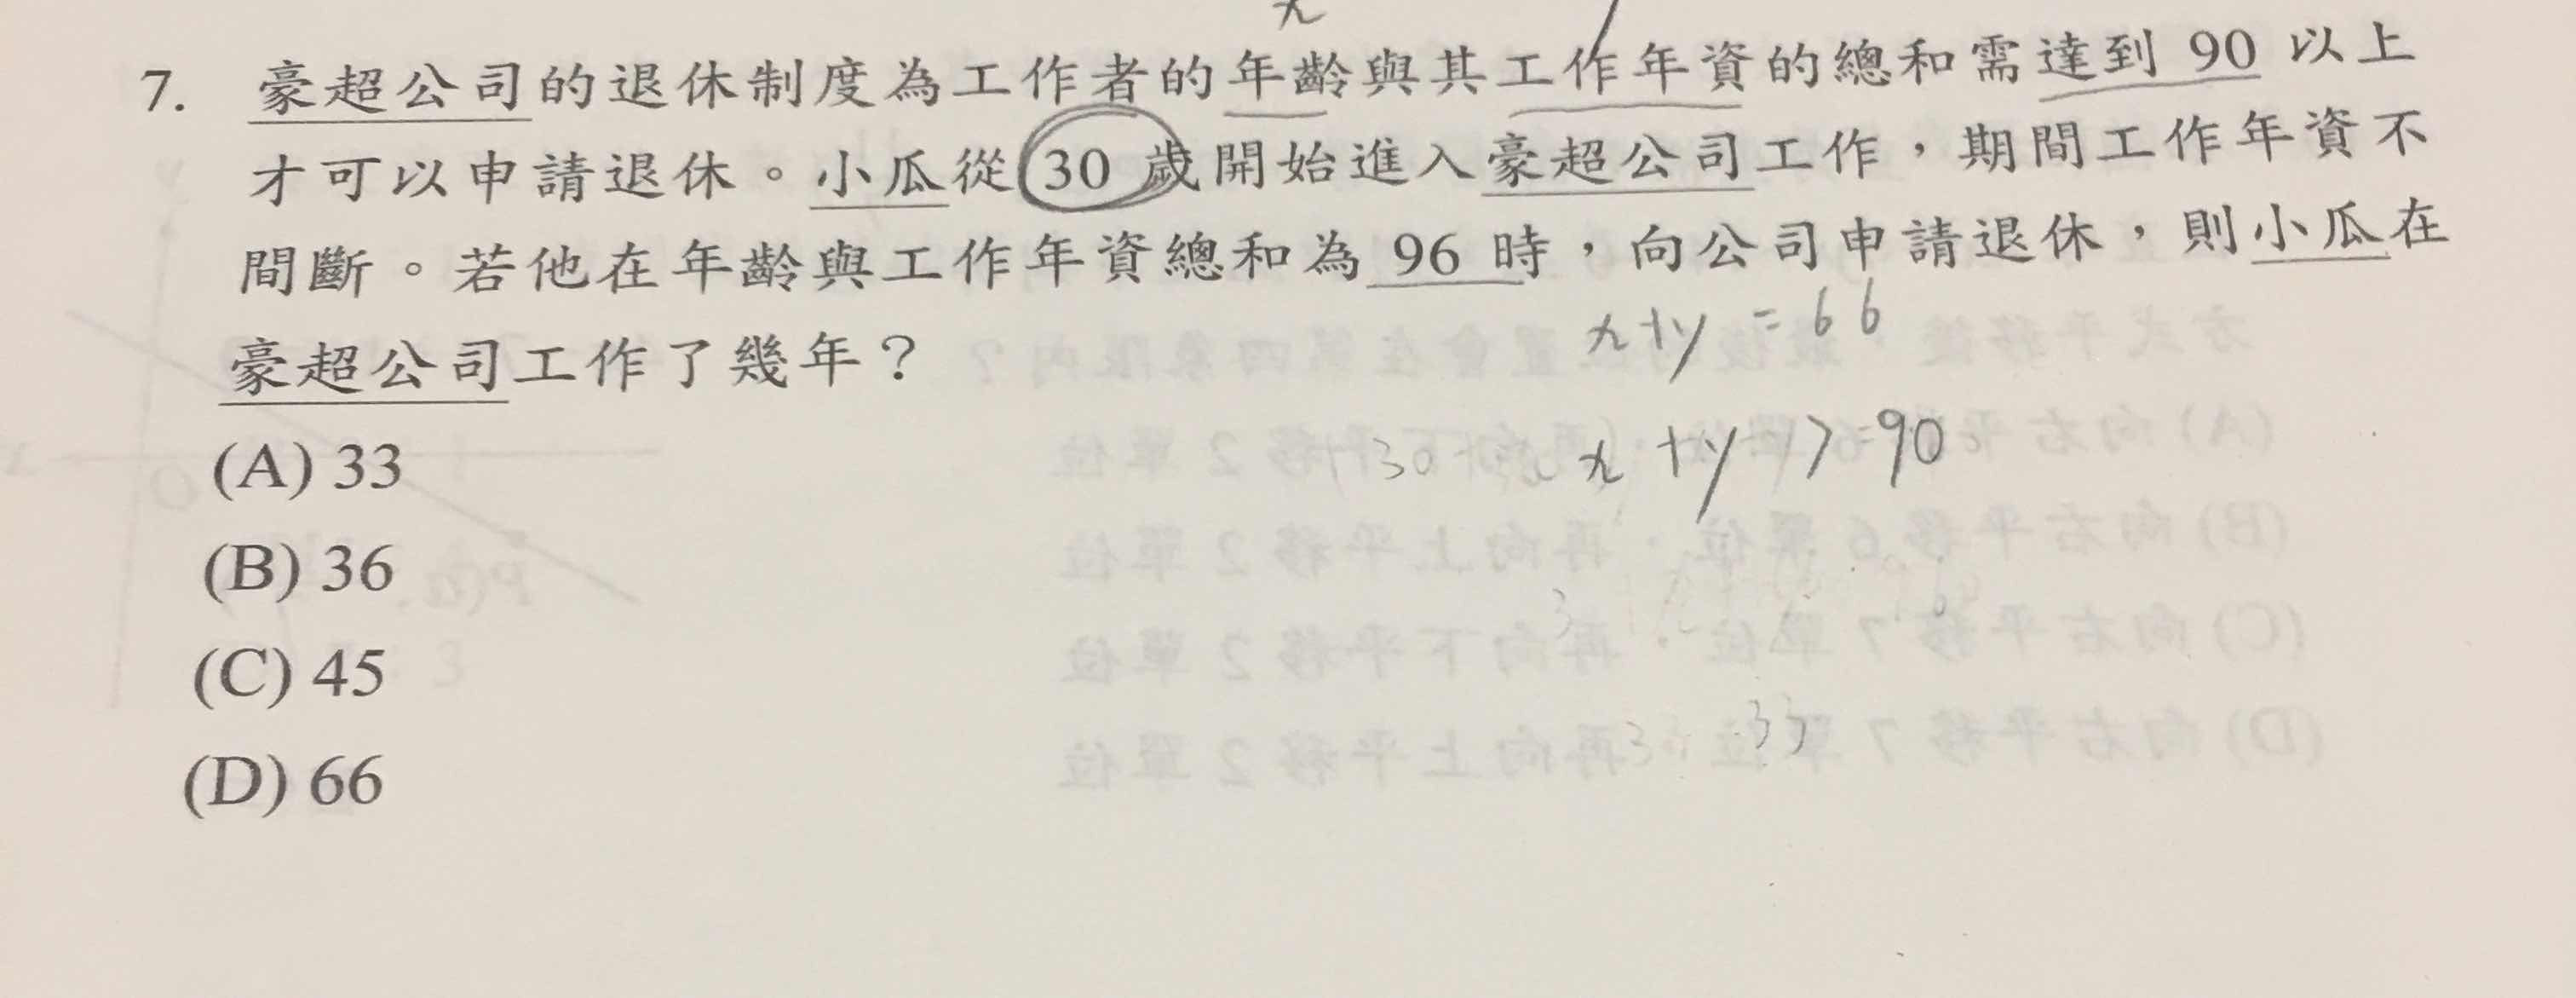 x
7. 豪超公司的退休制度為工作者的年齡與其工作年資的總和需達到 90 以上
才可以申請退休。小瓜從 30 歲開始進入豪超公司工作，期間工作年資不
間斷。若他在年齡與工作年資總和為 96 時，向公司申請退休，則小瓜在
豪超公司工作了幾年？
x+y = 66
(A) 33
x+y >=90
(B) 36
(C) 45
(D) 66
33